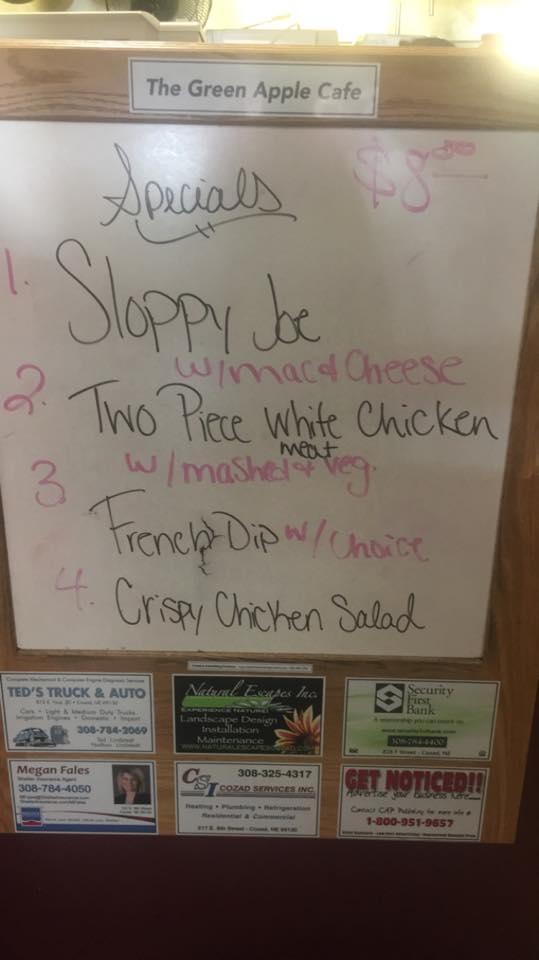 The Green Apple Cafe
Specials
$8.00
1. Sloppy Joe
w/mac & Cheese
2. Two Piece White Chicken
meat
w/mashed & veg.
3. French Dip w/Choice
4. Crispy Chicken Salad
Complete Mechanical & Computer Engine Diagnostic Services
TED'S TRUCK & AUTO
Cars - Light & Medium Duty Trucks
Irrigation Engines - Domestic - Import
308-784-2069
Natural Escapes Inc.
EXPERIENCE NATURE!
Landscape Design
Installation
Maintenance
Security
First
Bank
308-784-4400
Megan Fales
308-784-4050
CSI
308-325-4317
COZAD SERVICES INC.
Heating • Plumbing • Refrigeration
Residential & Commercial
GET NOTICED!!
Advertise your business here...
1-800-951-9657